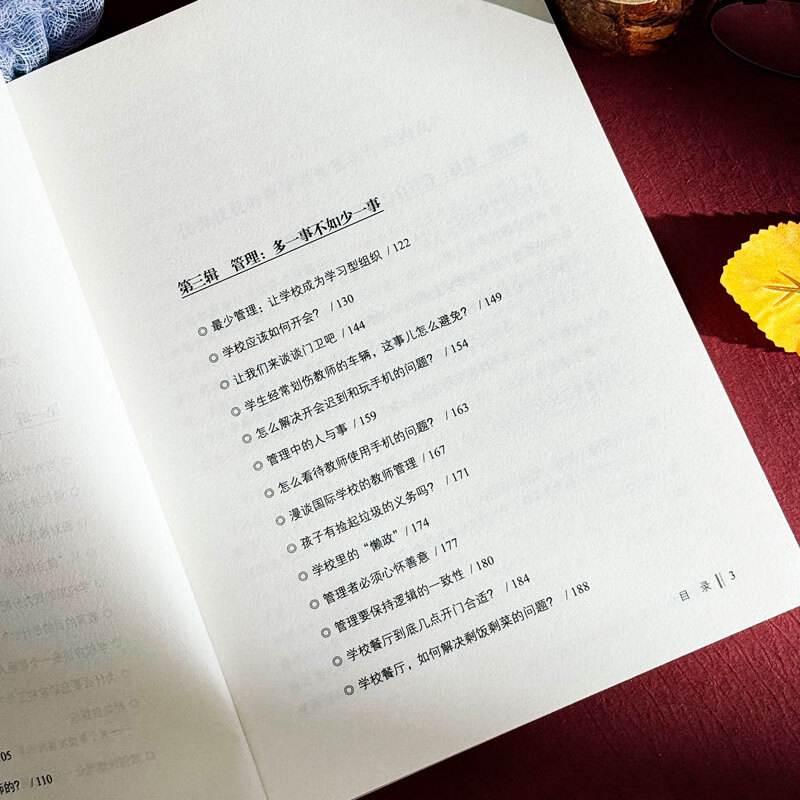 第三辑 管理：多一事不如少一事
◎ 最少管理：让学校成为学习型组织 / 122
◎ 学校应该如何开会？ / 130
◎ 让我们来谈谈门卫吧 / 144
◎ 学生经常划伤教师的车辆，这事儿怎么避免？ / 149
◎ 怎么解决开会迟到和玩手机的问题？ / 154
◎ 管理中的人与事 / 159
◎ 怎么看待教师使用手机的问题？ / 163
◎ 漫谈国际学校的教师管理 / 167
◎ 孩子有捡起垃圾的义务吗？ / 171
◎ 学校里的“懒政” / 174
◎ 管理者必须心怀善意 / 177
◎ 管理要保持逻辑的一致性 / 180
◎ 学校餐厅到底几点开门合适？ / 184
◎ 学校餐厅，如何解决剩饭剩菜的问题？ / 188
目 录 3
05
师的？ / 110